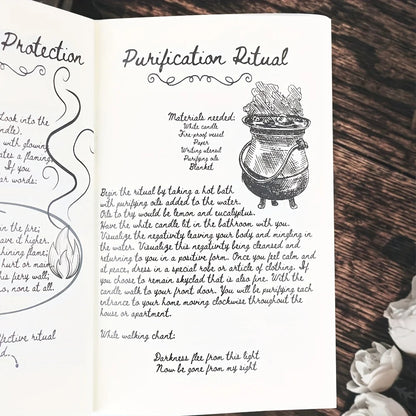 Protection
Look into the
candle).
with glowing
ates a flaming
If you
er words:
in the fire;
ave it higher.
shining flame;
hurt or maim.
his fiery wall;
o, none at all.
fective ritual
d.
Purification Ritual
Materials needed:
White candle
Fire-proof vessel
Paper
Writing utensil
Purifying oils
Blanket
Begin the ritual by taking a hot bath
with purifying oils added to the water.
Oils to try would be lemon and eucalyptus.
Have the white candle lit in the bathroom with you.
Visualize the negativity leaving your body and mingling in
the water. Visualize this negativity being cleansed and
returning to you in a positive form. Once you feel calm and
at peace, dress in a special robe or article of clothing. If
you choose to remain skyclad that is also fine. With the
candle walk to your front door. You will be purifying each
entrance to your home moving clockwise throughout the
house or apartment.
While walking chant:
Darkness flee from this light
Now be gone from my sight